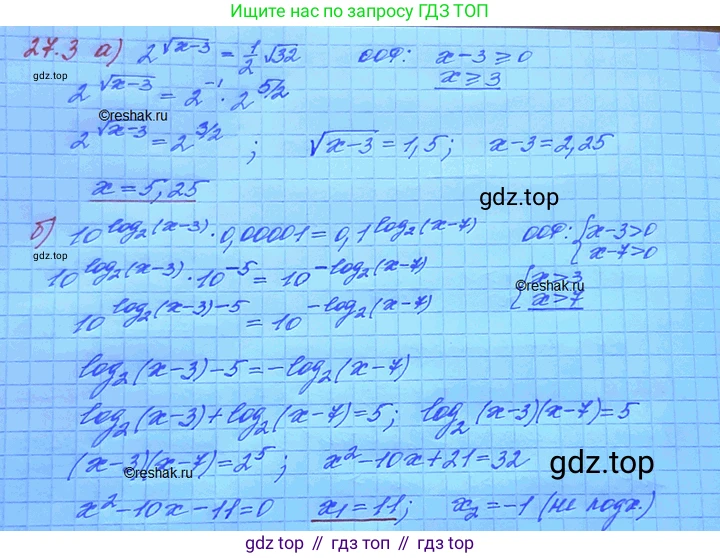 Ищите ответы по запросу ГДЗ ТОП
27.3 а) 2^√(x-3) = 1/2 √32 ООФ: x-3 ≥ 0
2^√(x-3) = 2^-1 · 2^5/2 x ≥ 3
©reshak.ru
2^√(x-3) = 2^3/2 ; √(x-3) = 1,5; x-3 = 2,25
x = 5,25
gdz.top
б) 10^log₂(x-3) · 0,00001 = 0,1^log₂(x-7) ООФ: {x-3>0
x-7>0
gdz.top
10^log₂(x-3) · 10^-5 = 10^-log₂(x-7) {x>3
©reshak.ru
x>7
10^log₂(x-3)-5 = 10^-log₂(x-7)
log₂(x-3)-5 = -log₂(x-7)
log₂(x-3)+log₂(x-7)=5; log₂(x-3)(x-7)=5
(x-3)(x-7)=2^5 ; x²-10x+21=32
©reshak.ru
gdz.top
x²-10x-11=0 x₁=11; x₂=-1 (не подх.)
gdz.top // гдз.топ // гдз.top